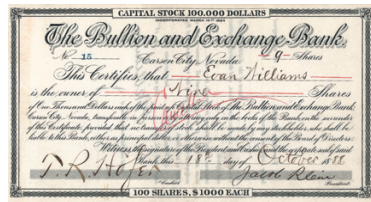 CAPITAL STOCK 100.000 DOLLARS
INCORPORATED MARCH
The Bullion and Exchange Bank,
No 15 Carson City, Nevada 9 Shares
This Certifies, that Evan Williams
is the owner of Nine Shares
of One Thousand Dollars each of the Capital Stock of The Bullion and Exchange Bank
Carson City, Nevada, transferable in person or by Attorney only on the books of the Bank, on the surrender
of this Certificate provided that no transfer of stock shall be made for any stockholder, who shall be
liable to this Bank, either as of the Board of Directors.
Witness, the signatures of the President and Cashier, and the corporate seal of said
Bank, this 18th day of October 1888
T. R. Hofer Jacob Klein
Cashier President
100 SHARES, $1000 EACH